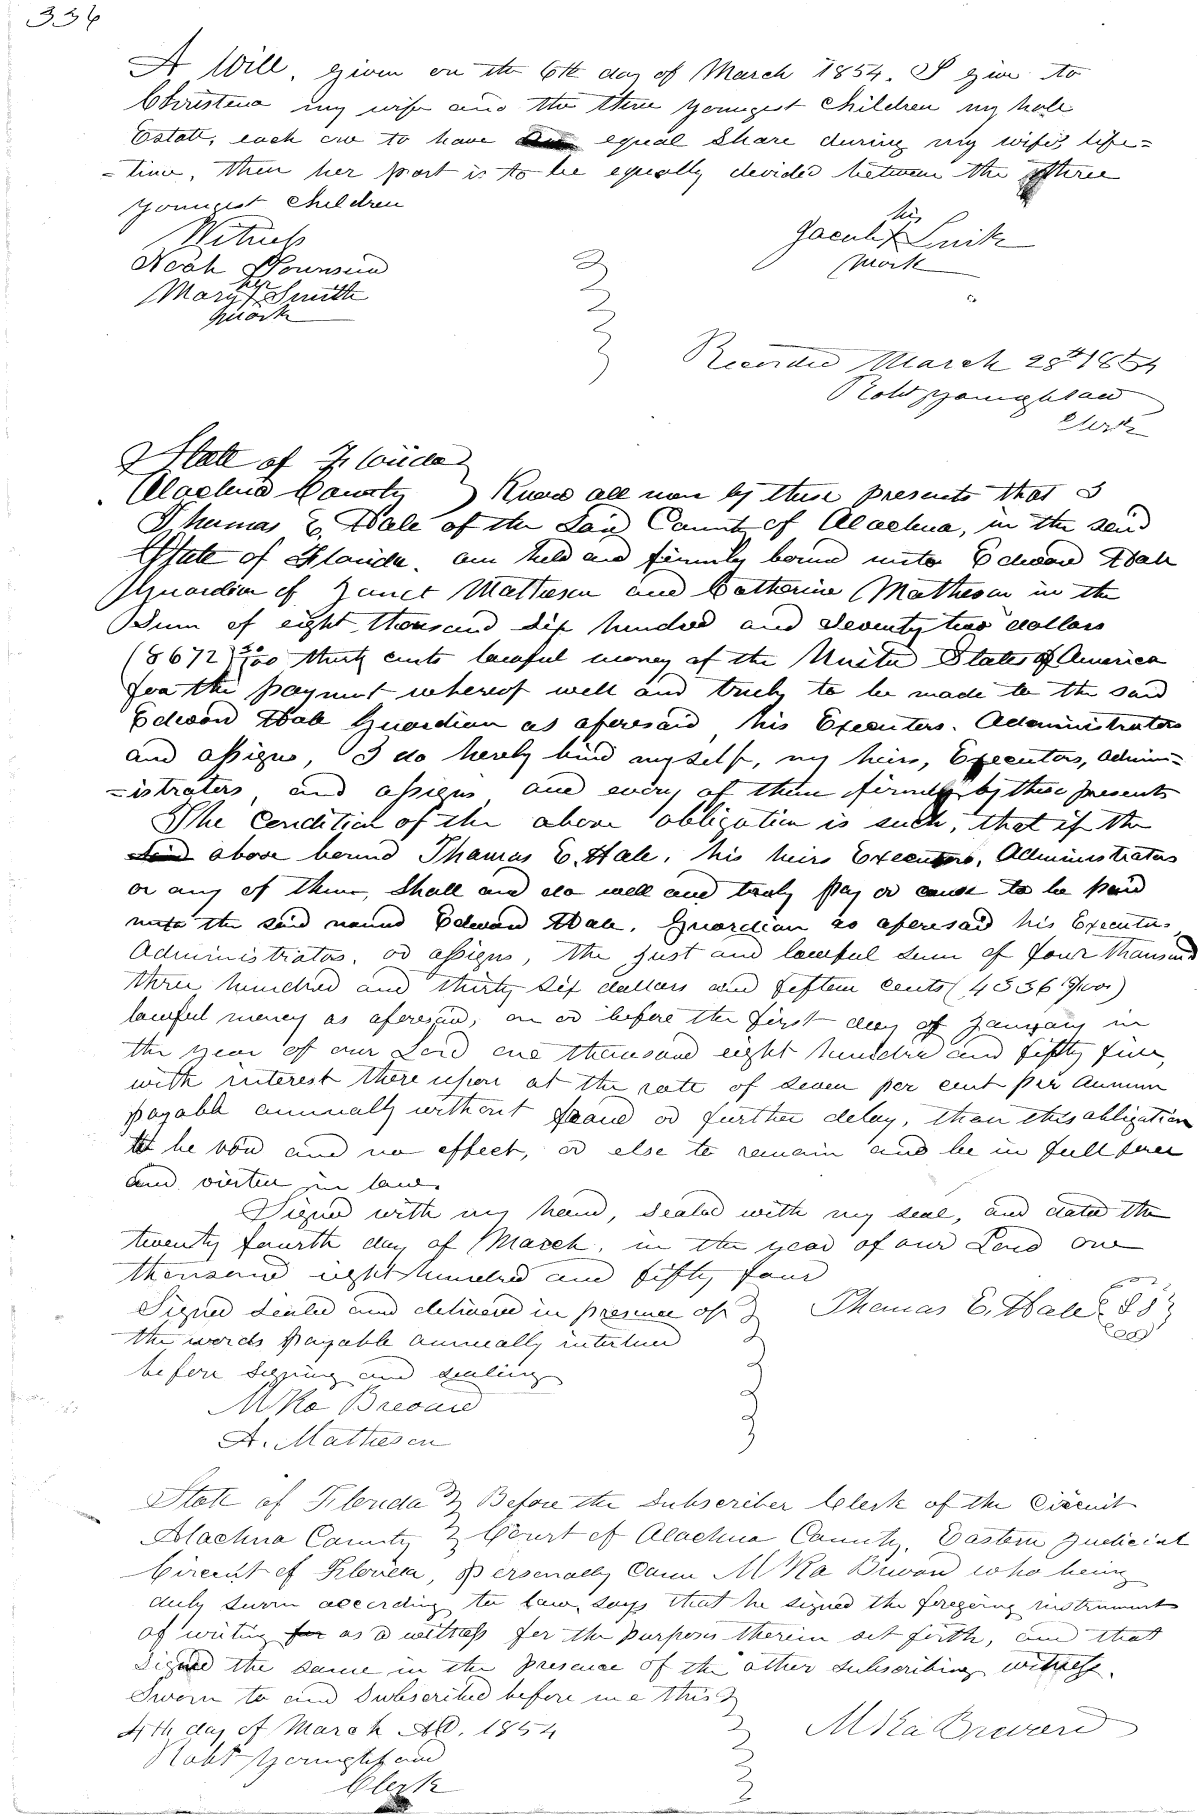 336
A Will, given on the 6th day of March 1854. I give to
Christena my wife and the three youngest children my hole
Estate, each one to have equal share during my wife's life=
=time, then her part is to be equally divided between the three
youngest children
Witness
his
Jacob X Smith
mark
Noah Townsend
her
Mary X Smith
mark
Recorded March 28th 1854
Robt Youngblood
Clerk
State of Florida
Alachua County } Know all men by these presents that I
Thomas E. Hale of the Said County of Alachua, in the said
State of Florida, am held and firmly bound unto Edward Hale
Guardian of Janet Matheson and Catherine Matheson in the
Sum of eight thousand six hundred and seventy two dollars
(8672 30/100 thirty cents lawful money of the United States of America
for the payment whereof well and truly to be made to the said
Edward Hale Guardian as aforesaid, his Executors. Administrators
and assigns, I do hereby bind myself, my heirs, Executors, admin=
=istrators, and assigns and every of them firmly by these presents
The Condition of the above obligation is such, that if the
said above bound Thomas E. Hale, his heirs Executors, Administrators
or any of them, Shall and do well and truly pay or cause to be paid
unto the said named Edward Hale, Guardian as aforesaid his Executors,
Administrators, or assigns, the just and lawful sum of four thousand
three hundred and thirty six dollars and fifteen cents (4336 15/100)
lawful money as aforesaid, on or before the first day of January in
the year of our Lord one thousand eight hundred and fifty five,
with interest thereupon at the rate of seven per cent per annum
payable annually without fraud or further delay, then this obligation
to be void and no effect, or else to remain and be in full force
and virtue in law.
Signed with my hand, sealed with my seal, and dated the
twenty fourth day of March, in the year of our Lord one
thousand eight hundred and fifty four
Signed sealed and delivered in presence of } Thomas E. Hale {SS}
the words payable annually interlined
before signing and sealing
A. Matheson
State of Florida } Before the Subscriber Clerk of the Circuit
Alachua County } Court of Alachua County, Eastern Judicial
Circuit of Florida, personally came M Ka Brevard who being
duly sworn according to law, says that he signed the foregoing instrument
of writing for as a witness for the purposes therein set forth, and that
signed the same in the presence of the other subscribing witness.
Sworn to and Subscribed before me this }
4th day of March AD. 1854
M Ka Brevard
Robt Youngblood
Clerk